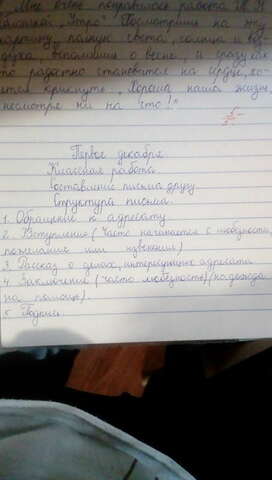 "Мне очень понравилась работа Т. Н.
Яблонской "Утро". Посмотришь на эту
картину, полную света, солнца и воз-
духа, вспомнишь о весне, и сразу как-
то радостно становится на сердце, хо-
чется крикнуть: "Хороша наша жизнь,
несмотря ни на что!"
5-
Первое декабря.
Классная работа.
Составление письма другу.
Структура письма.
1. Обращение к адресату.
2. Вступление (часто начинается с любезности,
пожелания или извинения)
3. Рассказ о делах, интересующих адресата.
4. Заключение (часто любезность)/надежда
на помощь).
5. Подпись